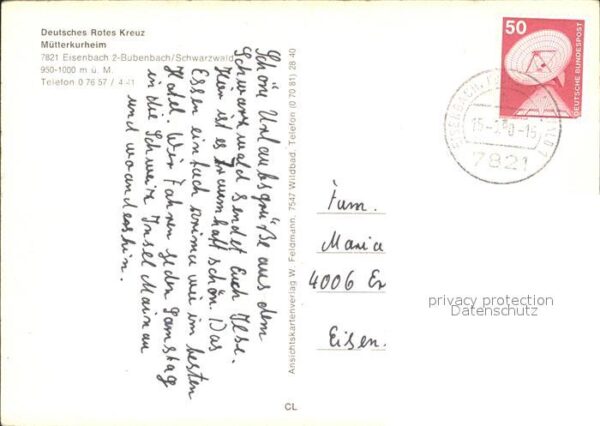 Deutsches Rotes Kreuz
Mütterkurheim
7821 Eisenbach 2-Bubenbach/Schwarzwald
950-1000 m ü. M.
Telefon 0 76 57 / 4 41
Schöne Urlaubsgrüße aus dem
Schwarzwald sendet Euch Ilse.
Hier ist es traumhaft schön. Das
Essen einfach prima wie im besten
Hotel. Wir fahren jeden Samstag
in die Schweiz, Insel Mainau
und woandershin.
Ansichtskartenverlag W. Feldmann, 7547 Wildbad, Telefon (0 70 81) 28 40
CL
50
DEUTSCHE BUNDESPOST
EISENBACH
7821
Fam.
Maria
4006 Er
Eisen.
privacy protection
Datenschutz